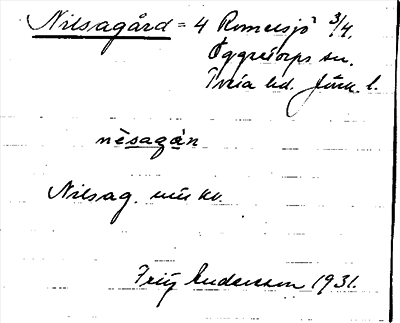 Nilsagård = 4 Romelsjö 3/4,
Öggestorps sn.
Tveta hd. Jönk. l.
nèsagán
Nilsag. min kv.
Fritz Andersson 1931.